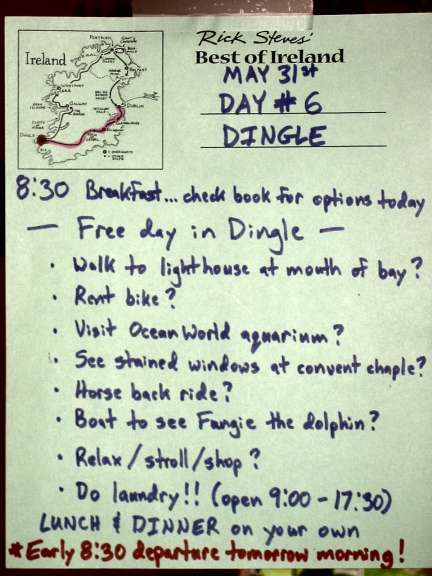 Ireland
Rick Steves'
Best of Ireland
MAY 31st
DAY # 6
DINGLE
DUBLIN
GALWAY
BELFAST
DINGLE
8:30 Breakfast... check book for options today
— Free day in Dingle —
• Walk to lighthouse at mouth of bay?
• Rent bike?
• Visit OceanWorld aquarium?
• See stained windows at convent chaple?
• Horse back ride?
• Boat to see Fungie the dolphin?
• Relax/stroll/shop?
• Do laundry!! (open 9:00 - 17:30)
LUNCH & DINNER on your own
*Early 8:30 departure tomorrow morning!